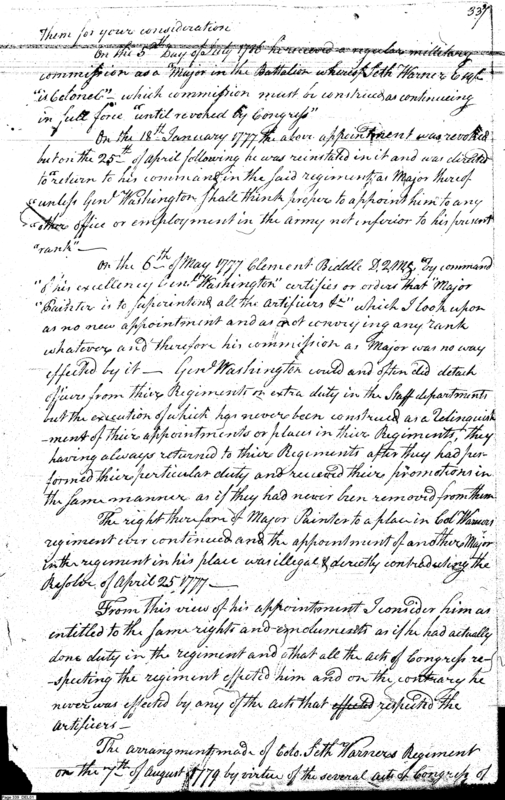 337
Them for your consideration
On the 5th Day of July 1776 he recieved a regular military
commission as a "Major in the Battalion whereof Seth Warner Esqr
"is Colonel" which commission must be construed as continueing
in full force "until revoked by Congress"
On the 18th January 1777 the above appointment was revoked
but on the 25th of april following he was reinstated in it and was directed
to "return to his command in the said regiment, as Major thereof
"unless Genl Washington shall think proper to appoint him to any
"other office or employment in the army not inferior to his present
"rank" —
On the 6th of May 1777 Clement Biddle D.Q.M.G. "by command
"of his excellency Genl Washington" certifies or orders that "Major
"Painter is to superintend all the artificers &c" which I look upon
as no new appointment and as not conveying any rank
whatever and therefore his commission as Major was no way
effected by it — Genl Washington could and often did detach
officers from their Regiments on extra duty in the Staff departments
but the execution of which has never been construed as a relinquish
-ment of their appointments or places in their Regiments, they
having always returned to their Regiments after they had per-
formed their perticular duty and recieved their promotions in
the same manner as if they had never been removed from them
The right therefore of Major Painter to a place in Colo Warners
regiment ever continued and the appointment of another Major
in the regiment in his place was illegal & directly contradicting the
Resolve of April 25, 1777 —
From this view of his appointment I consider him as
entitled to the same rights and emoluments as if he had actually
done duty in the regiment and that all the acts of Congress re-
specting the regiment effected him and on the contrary he
never was effected by any of the acts that effected respected the
artificers —
The arrangment made of Colo. Seth Warners Regiment
on the 7th of August 1779 by virtue of the several acts of Congress of